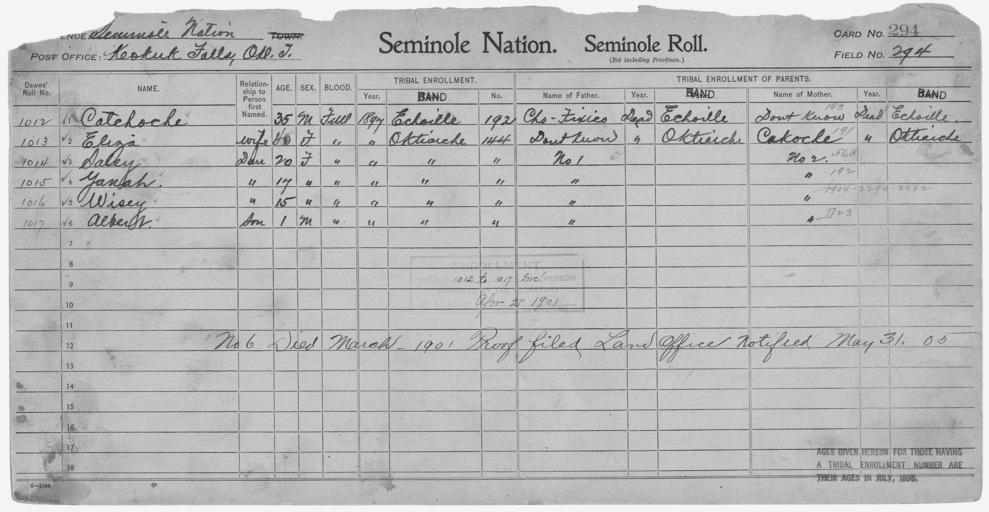 ENCE Seminole Nation TOWN.
POST OFFICE: Keokuk Falls, Okl. T.
Seminole Nation. Seminole Roll.
(Not including Freedmen.)
CARD NO. 294
FIELD NO. 294
Dawes' Roll No. NAME. Relationship to Person first Named. AGE. SEX. BLOOD. TRIBAL ENROLLMENT. Year. BAND No. TRIBAL ENROLLMENT OF PARENTS. Name of Father. Year. BAND. Name of Mother. Year. BAND
1012 1 Catchoche 35 M Full 1897 Echoille 192 Cho-Fixico Dead Echoille Dont Know 193 Dead Echoille
1013 2 Eliza wife F " " Oktiarche 144 Dont Know " Oktiarche Cakoche 191 " Oktiarche
1014 3 Saley Dau 20 F " " " " No 1 No 2. 565
1015 4 Yanah. " 17 " " " " " " " 192
1016 5 Wisey " 15 " " " " " " "
1017 6 Albert. Son 1 M " " " " " " D23
7
8
9
10
11
12
13
14
15
16
17
18
ENROLLMENT
1012 to 1017 Inc HEREON
Apr 25 1901
No 6 Died March - 1901 Proof filed Land Office Notified May 31. 05
AGES GIVEN HEREON FOR THOSE HAVING
A TRIBAL ENROLLMENT NUMBER ARE
THEIR AGES IN JULY, 1898.
6—1044